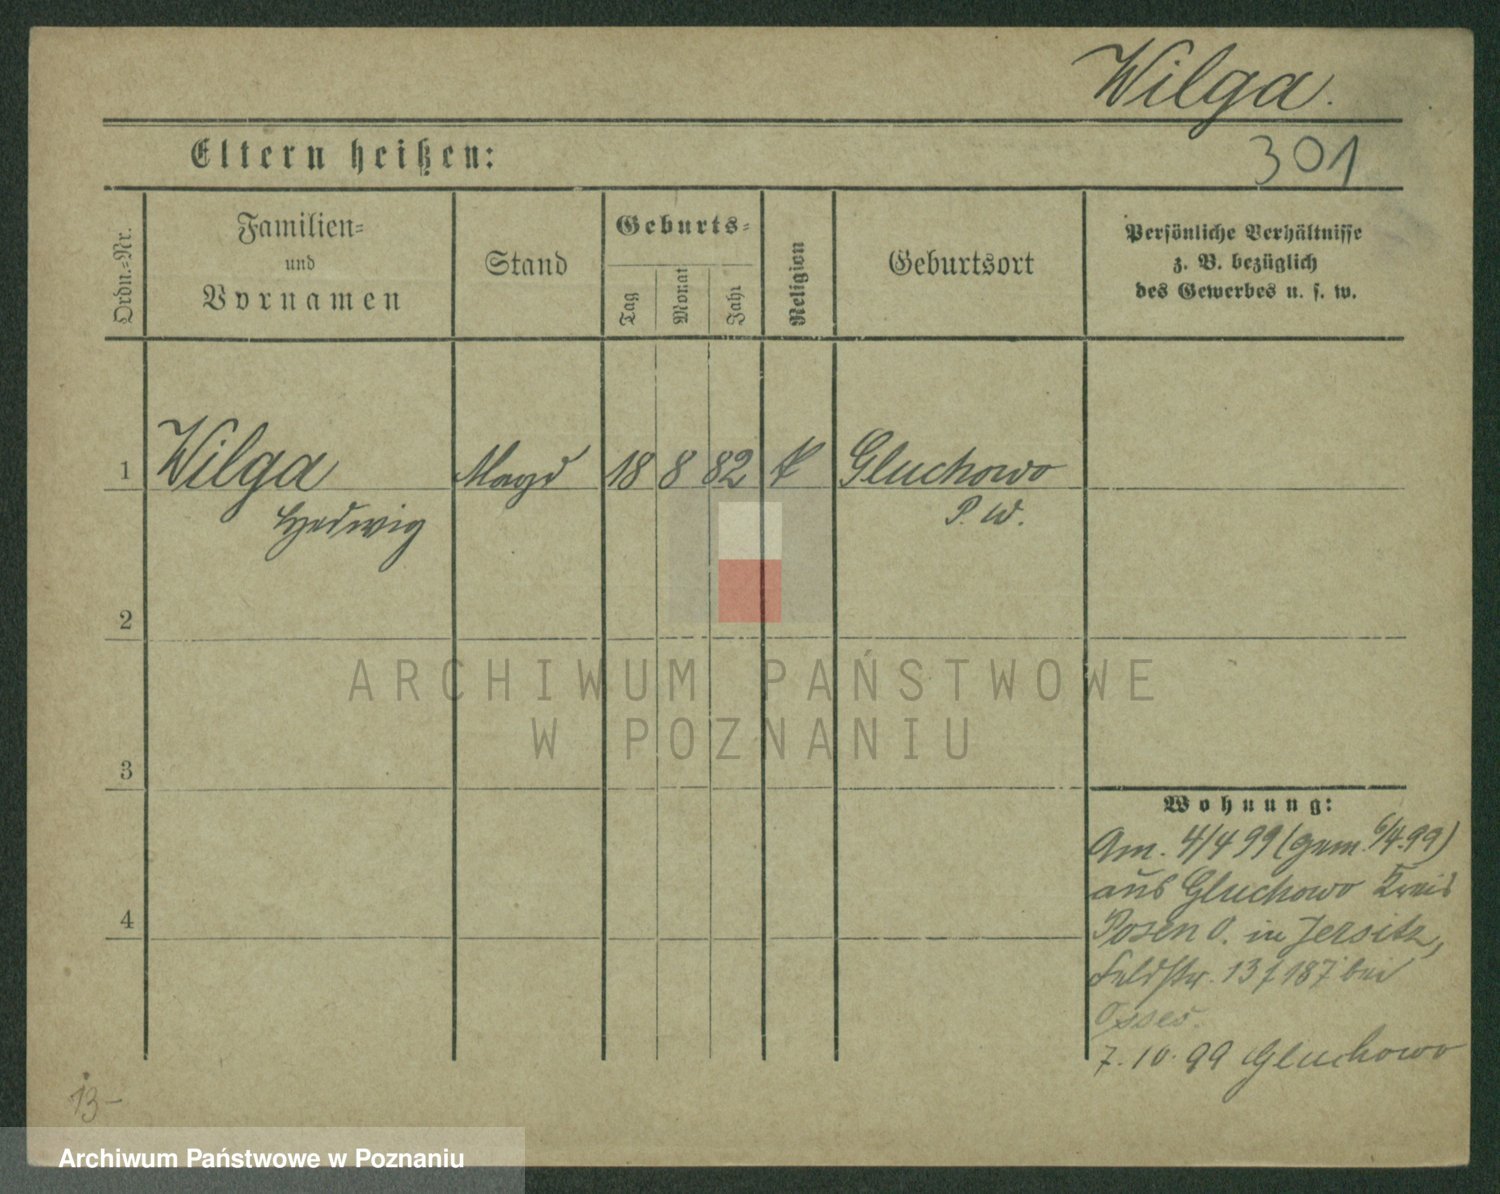 Wilga.
301
Eltern heißen:
Ordn.-Nr.
Familien-
und
Vornamen
Stand
Geburts-
Tag
Monat
Jahr
Religion
Geburtsort
Persönliche Verhältnisse
z. B. bezüglich
des Gewerbes u. s. w.
1 Wilga Magd 18 8 82 k Gluchowo
Hedwig P. W.
2
ARCHIWUM PAŃSTWOWE
W POZNANIU
3
Wohnung:
Am. 4/4 99 (gem. 6/4.99)
aus Gluchowo Kreis
4
Posen O. in Jersitz,
Feldstr. 13 187 bei
7. 10. 99 Gluchowo
13-
Archiwum Państwowe w Poznaniu